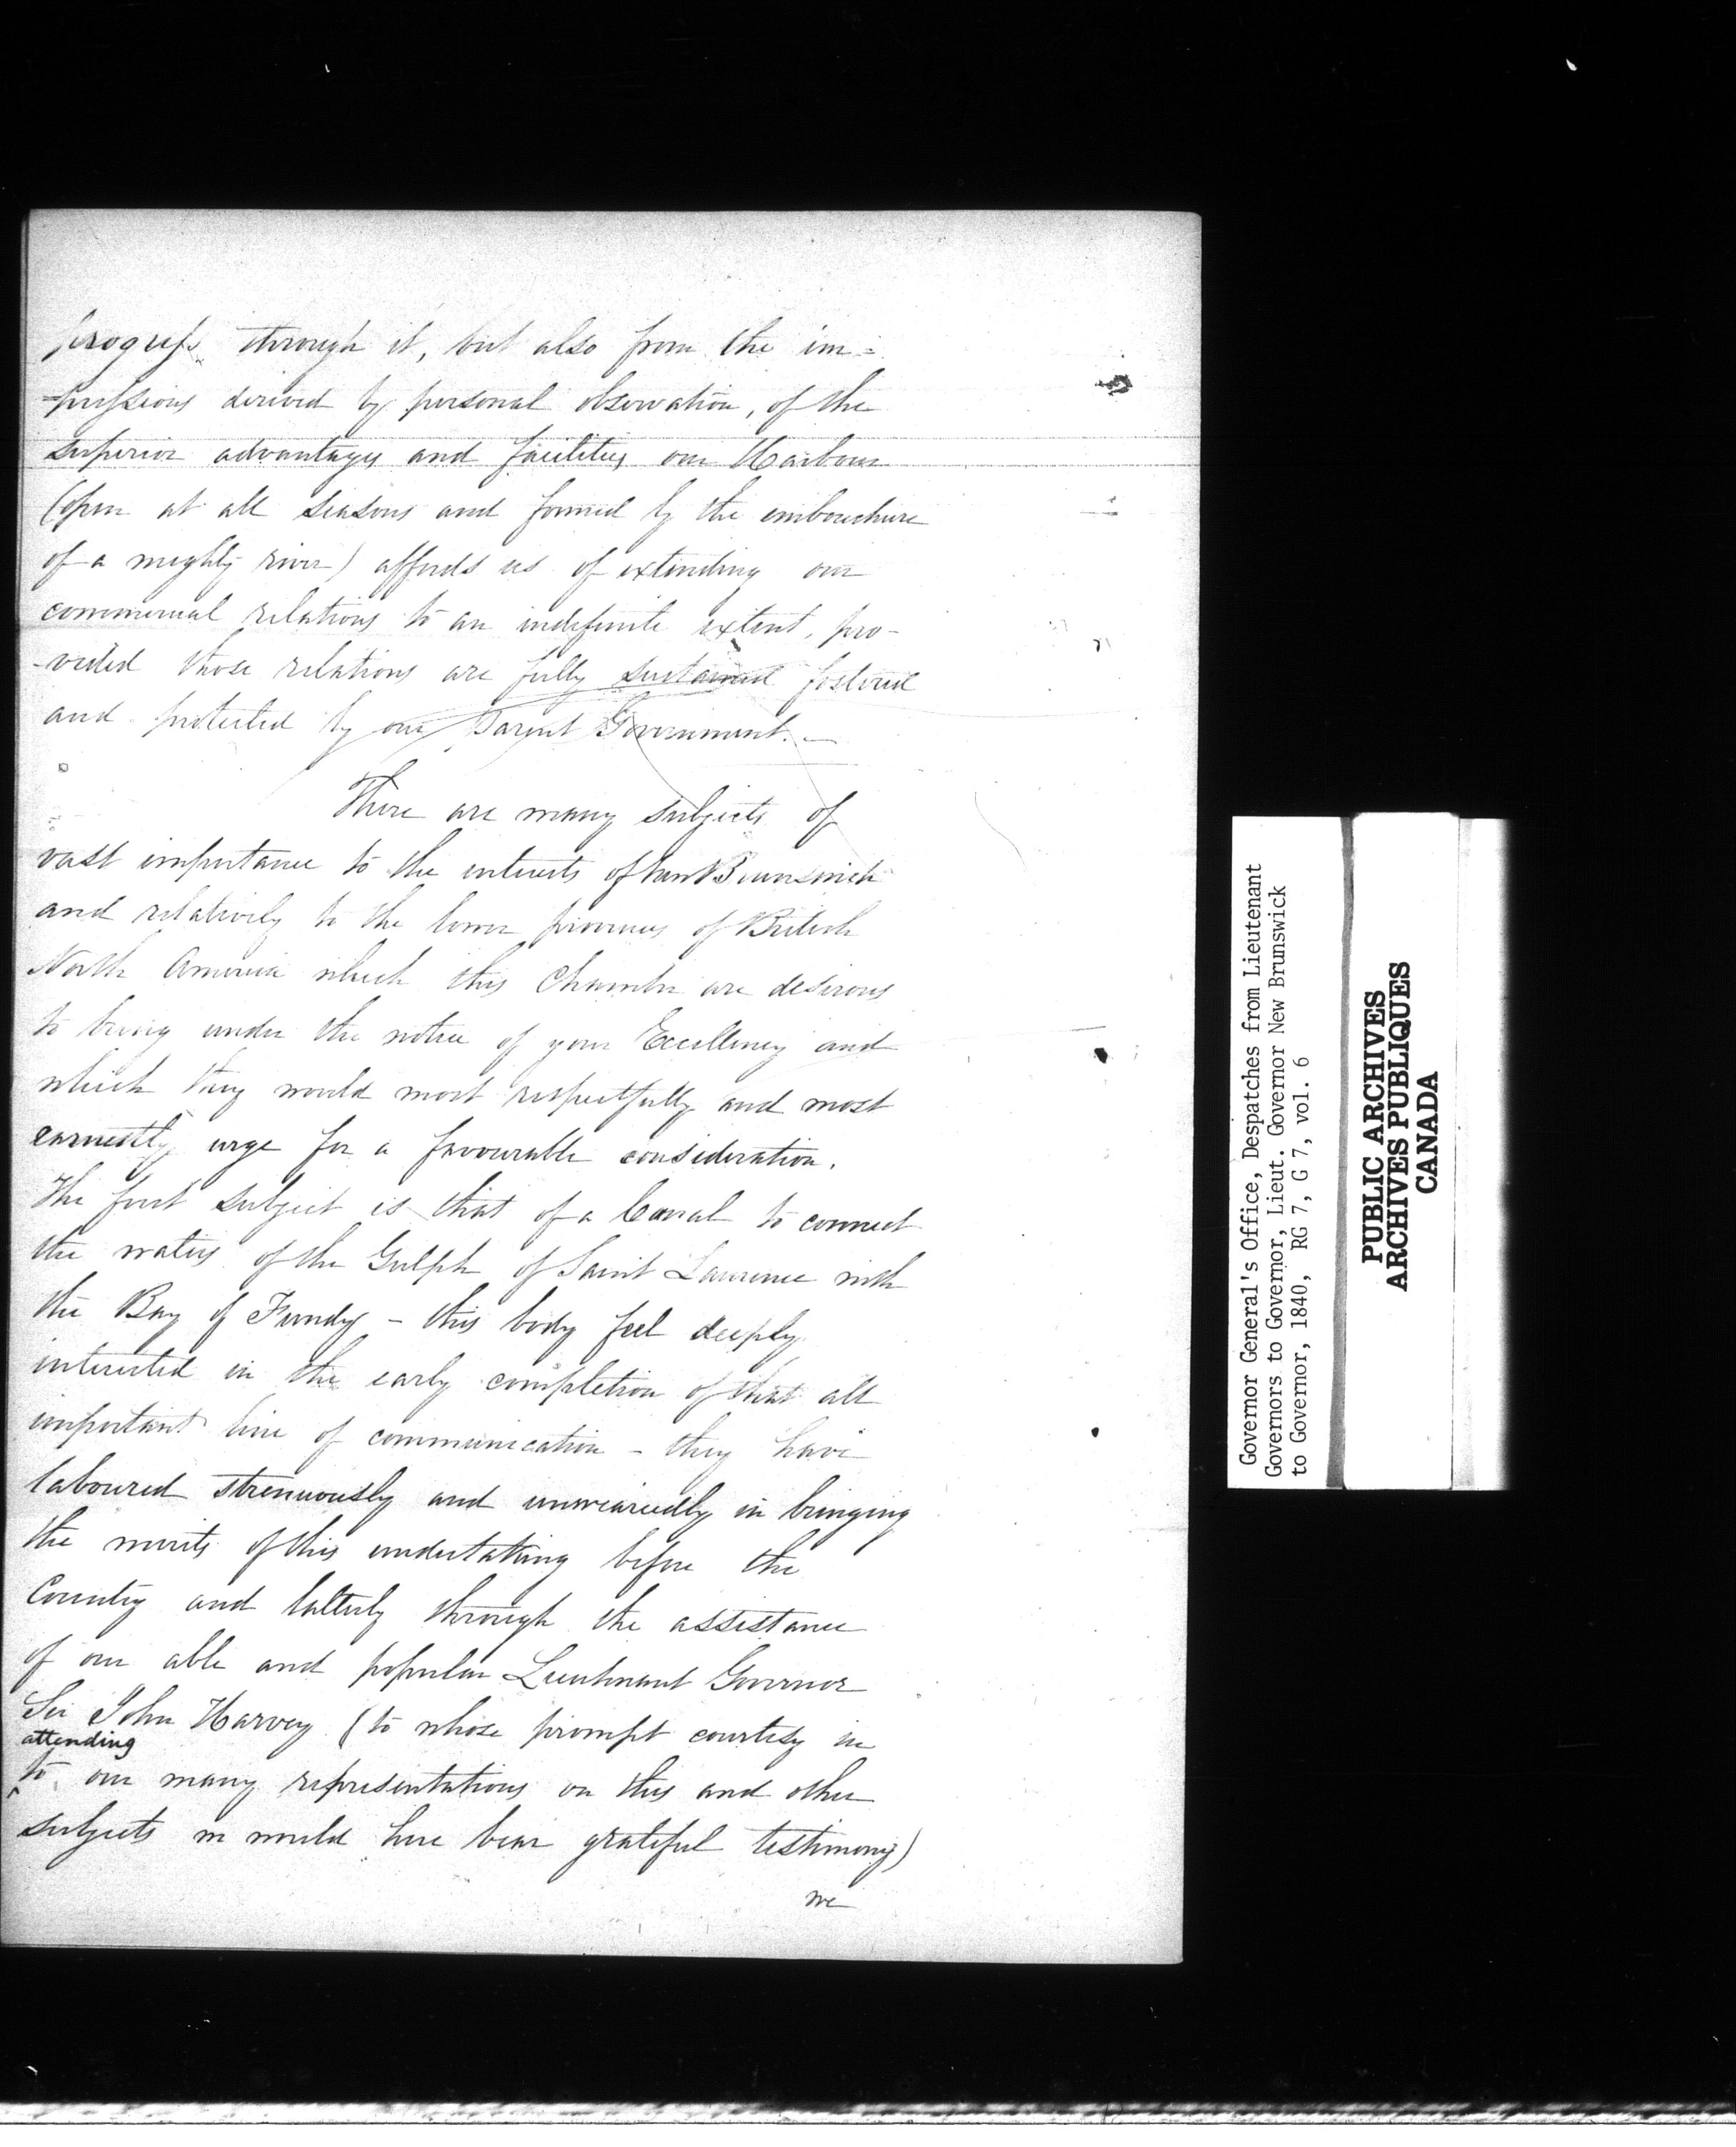 progress through it, but also from the im=
=pressions derived by personal observation, of the
superior advantages and facilities our Harbour
(open at all seasons and formed by the embouchure
of a mighty river) affords us of extending our
commercial relations to an indefinite extent, pro-
-vided those relations are fully sustained fostered
and protected by our Parent Government. —
There are many subjects of
vast importance to the interests of New Brunswick
and relatively to the lower provinces of British
North America which this Chamber are desirous
to bring under the notice of your Excellency and
which they would most respectfully and most
earnestly urge for a favourable consideration.
The first subject is that of a Canal to connect
the waters of the Gulph of Saint Lawrence with
the Bay of Fundy – this body feel deeply
interested in the early completion of that all
important line of communication – they have
laboured strenuously and unweariedly in bringing
the merits of this undertaking before the
Country and latterly through the assistance
of our able and popular Lieutenant Governor
Sir John Harvey (to whose prompt courtesy in
attending
to our many representations on this and other
subjects we would here bear grateful testimony)
we
Governor General's Office, Despatches from Lieutenant
Governors to Governor, Lieut. Governor New Brunswick
to Governor, 1840, RG 7, G 7, vol. 6
PUBLIC ARCHIVES
ARCHIVES PUBLIQUES
CANADA